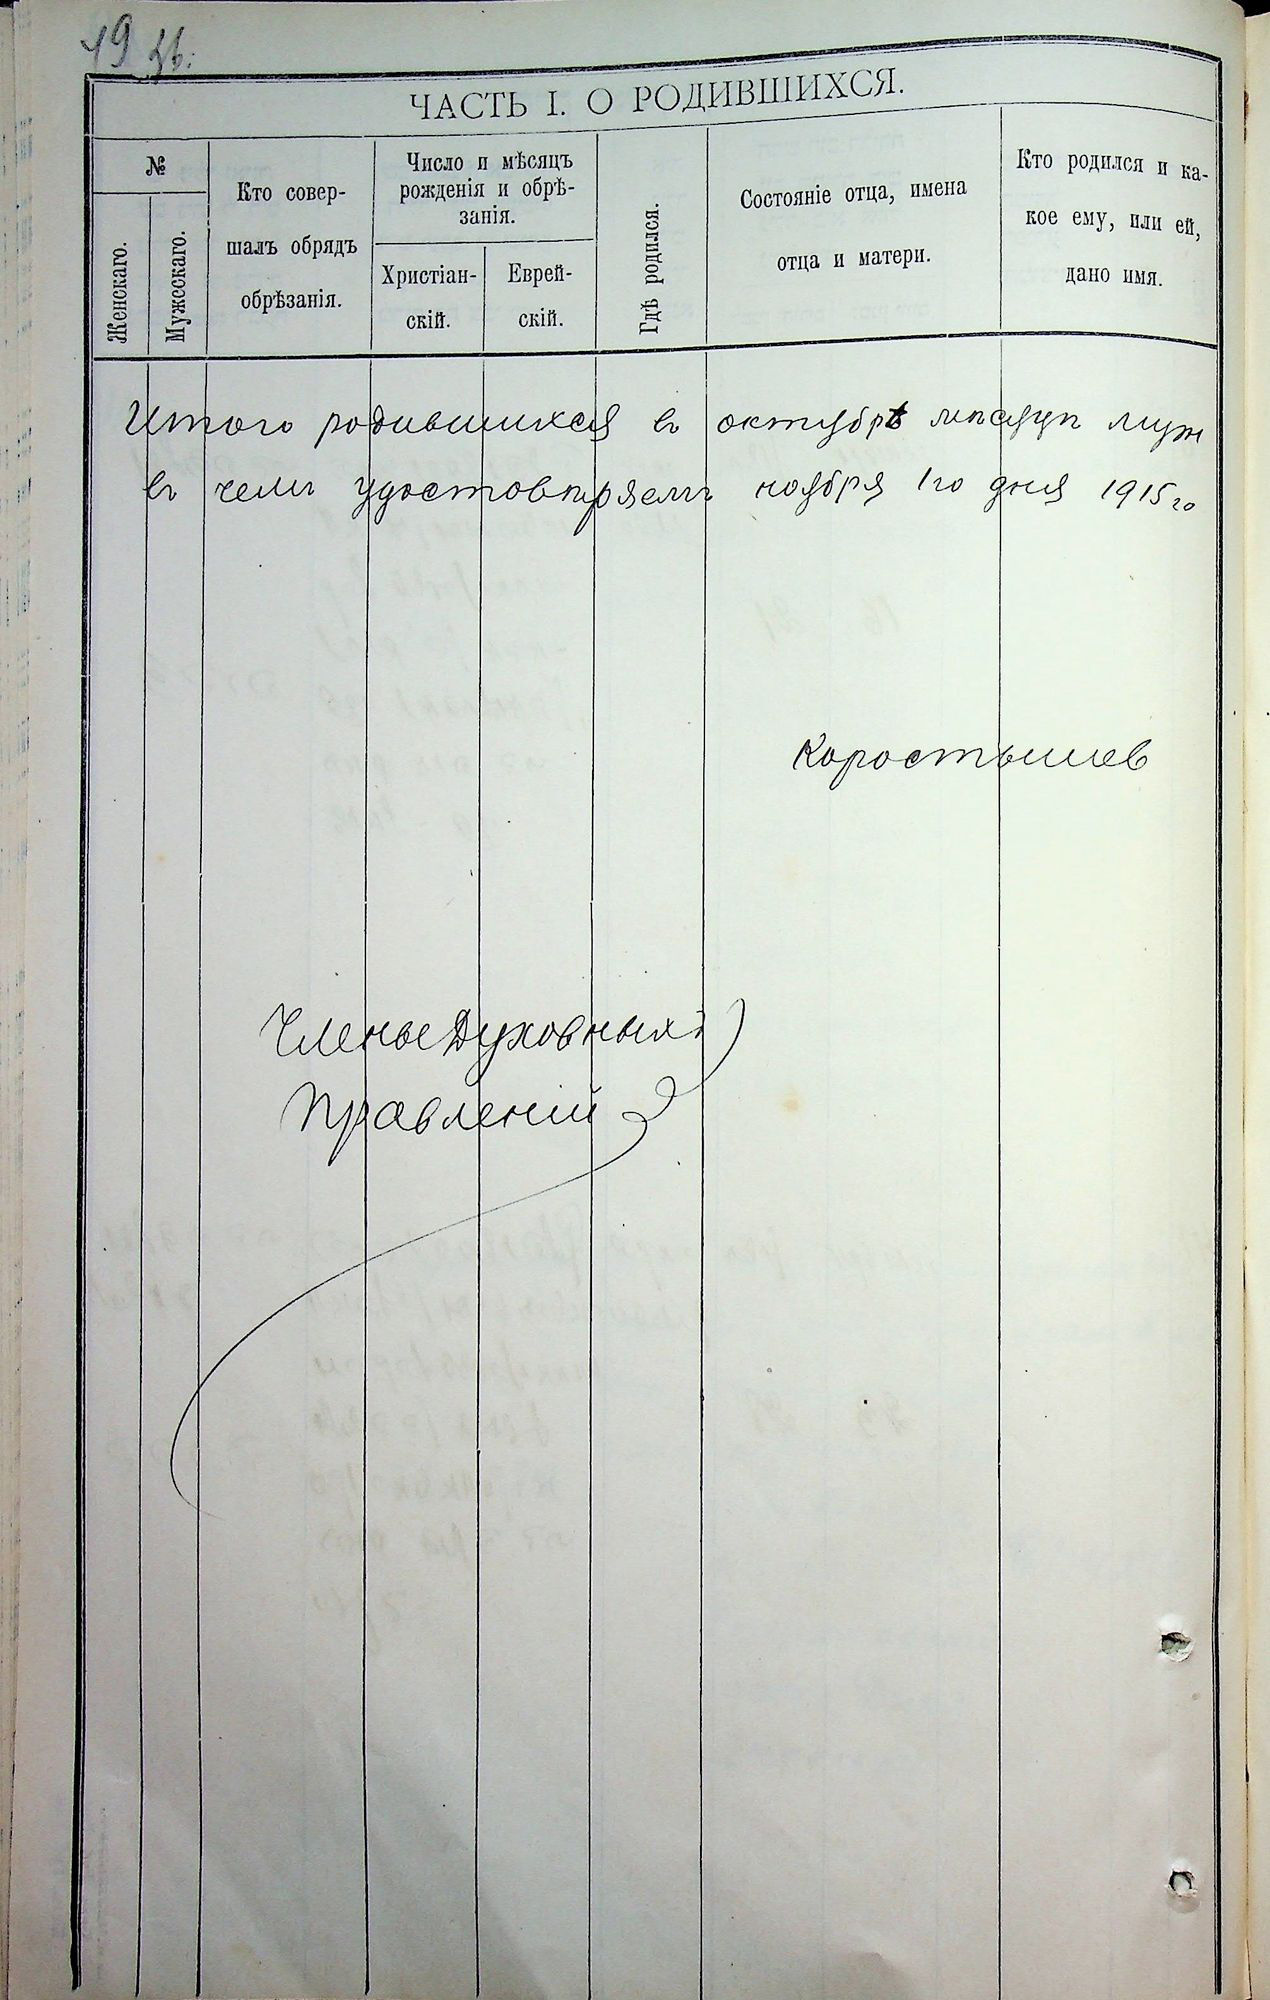 19 зв.
ЧАСТЬ I. О РОДИВШИХСЯ.
№
Женскаго.
Мужескаго.
Кто совер-
шалъ обрядъ
обрѣзанія.
Число и мѣсяцъ
рожденія и обрѣ-
занія.
Христіан-
скій.
Еврей-
скій.
Гдѣ родился.
Состояніе отца, имена
отца и матери.
Кто родился и ка-
кое ему, или ей,
дано имя.
Итого родившихся въ октябрѣ мѣсяцѣ муж
въ чемъ удостовѣряемъ ноября 1го дня 1915 го
Коростышев
Члены Духовныхъ
Правленій